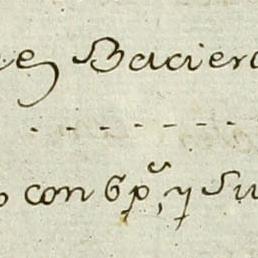 Baciero
con 6 p.ˢ, y su